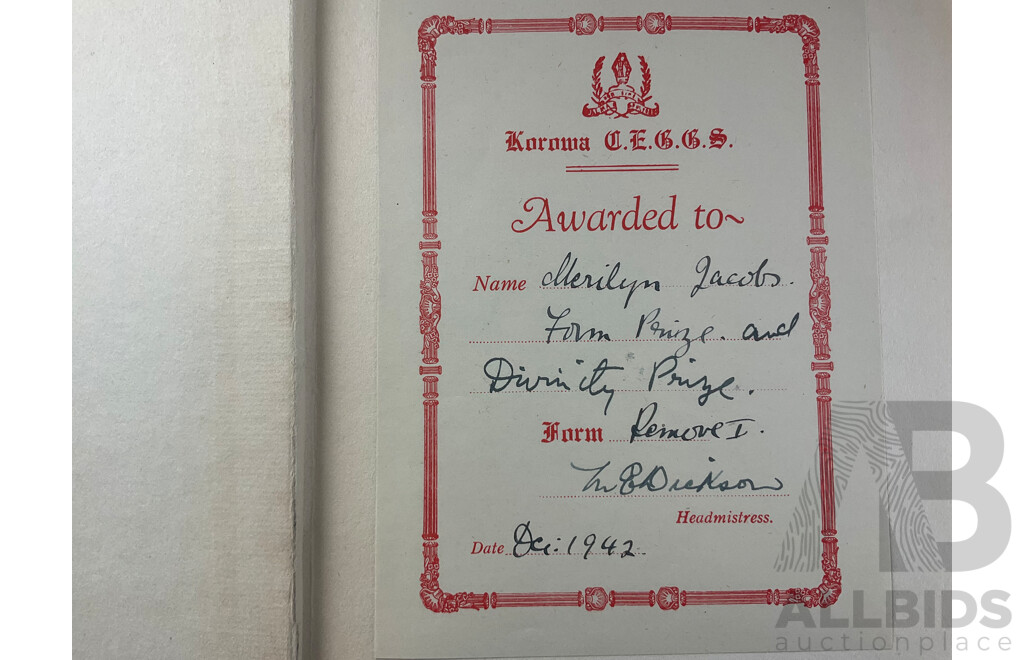 Korowa C.E.G.G.S.
Awarded to~
Name Merilyn Jacobs.
Form Prize. and
Divinity Prize.
Form Remove I.
M E Dickson
Headmistress.
Date Dec: 1942
AB
ALLBIDS
auctionplace